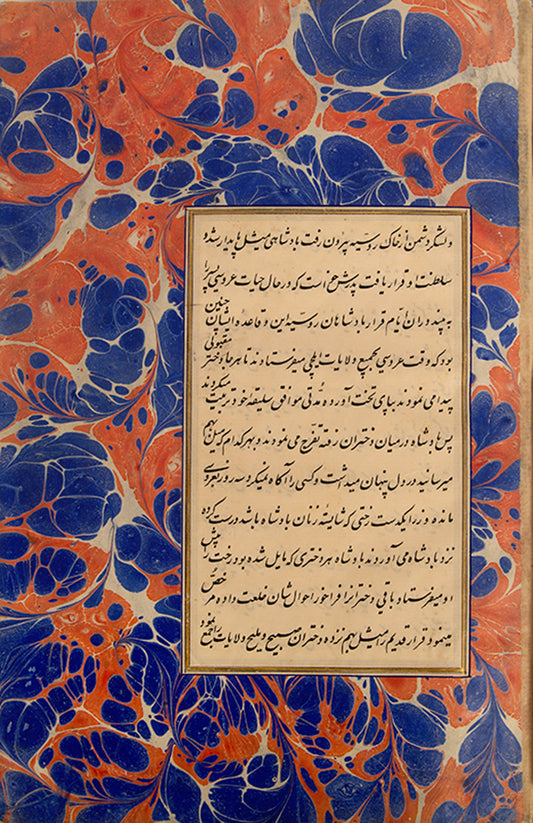 و لشکر دشمن از خاک روسیه بیرون رفت پادشاهی میشل پایدار شد و
سلطنت او قرار یافت پدرش مخ است که در حال حیات عروسی پسر را
به بیند در آن ایام قرار پادشاهان روسیه این و قاعده و ایشان چنین
بود که وقت عروسی بجمیع ولایات ایلچی میفرستادند تا هر جا دختر مقبولی
پیدا می نمودند بپای تخت آورده مدتی موافق سلیقه خود تربیت میکردند
پس پادشاه در میان دختران رفته تفرج می نمودند و بهر کدام که میل بهم
میرسانید در دل پنهان میداشت و کسی را آگاه نمیکرد سه روز بعروسی
مانده وزرا یکدست رختی که شایسته زنان پادشاه باشد درست کرده
نزد پادشاه می آوردند پادشاه هر دختری که مایل شده بود رخت را پیش
او میفرستاد باقی دختر انرا فراخور احوال شان خلعت داده مرخص
مینمود قرار قدیم را میشل بهم نزده دختران صبیح و ملیح ولایات را جمع نمود